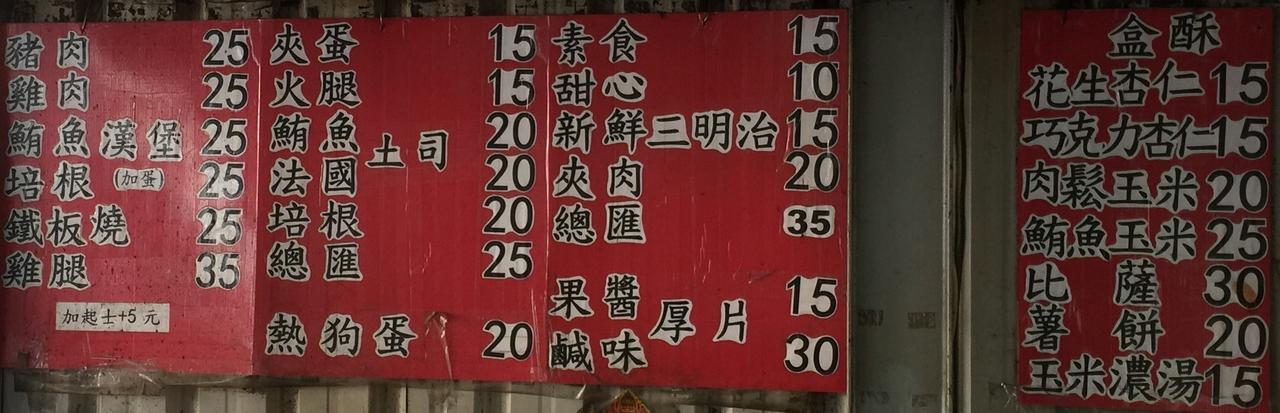 豬肉 25
雞肉 25
鮪魚漢堡 25
培根(加蛋) 25
鐵板燒 25
雞腿 35
加起士+5元
夾蛋 15
火腿 15
鮪魚 20
土司
法國 20
培根 20
總匯 25
熱狗蛋 20
素食 15
甜心 10
新鮮三明治 15
夾肉 20
總匯 35
果醬 15
厚片
鹹味 30
盒酥
花生杏仁 15
巧克力杏仁 15
肉鬆玉米 20
鮪魚玉米 25
比薩 30
薯餅 20
玉米濃湯 15